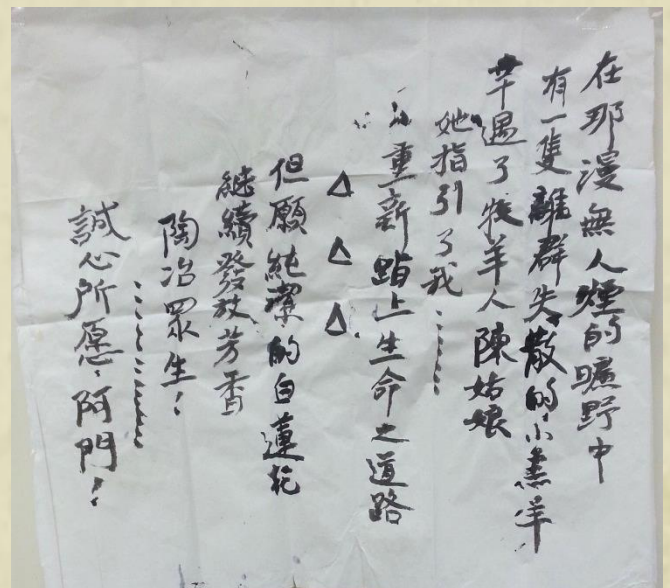 在那漫無人煙的曠野中
有一隻離群失散的小羔羊
幸遇了牧羊人陳姑娘
她指引了我……
重新踏上生命之道路
△△△
但願純潔的白蓮花
繼續發放芳香
陶冶眾生！
…………
誠心所愿，阿門！